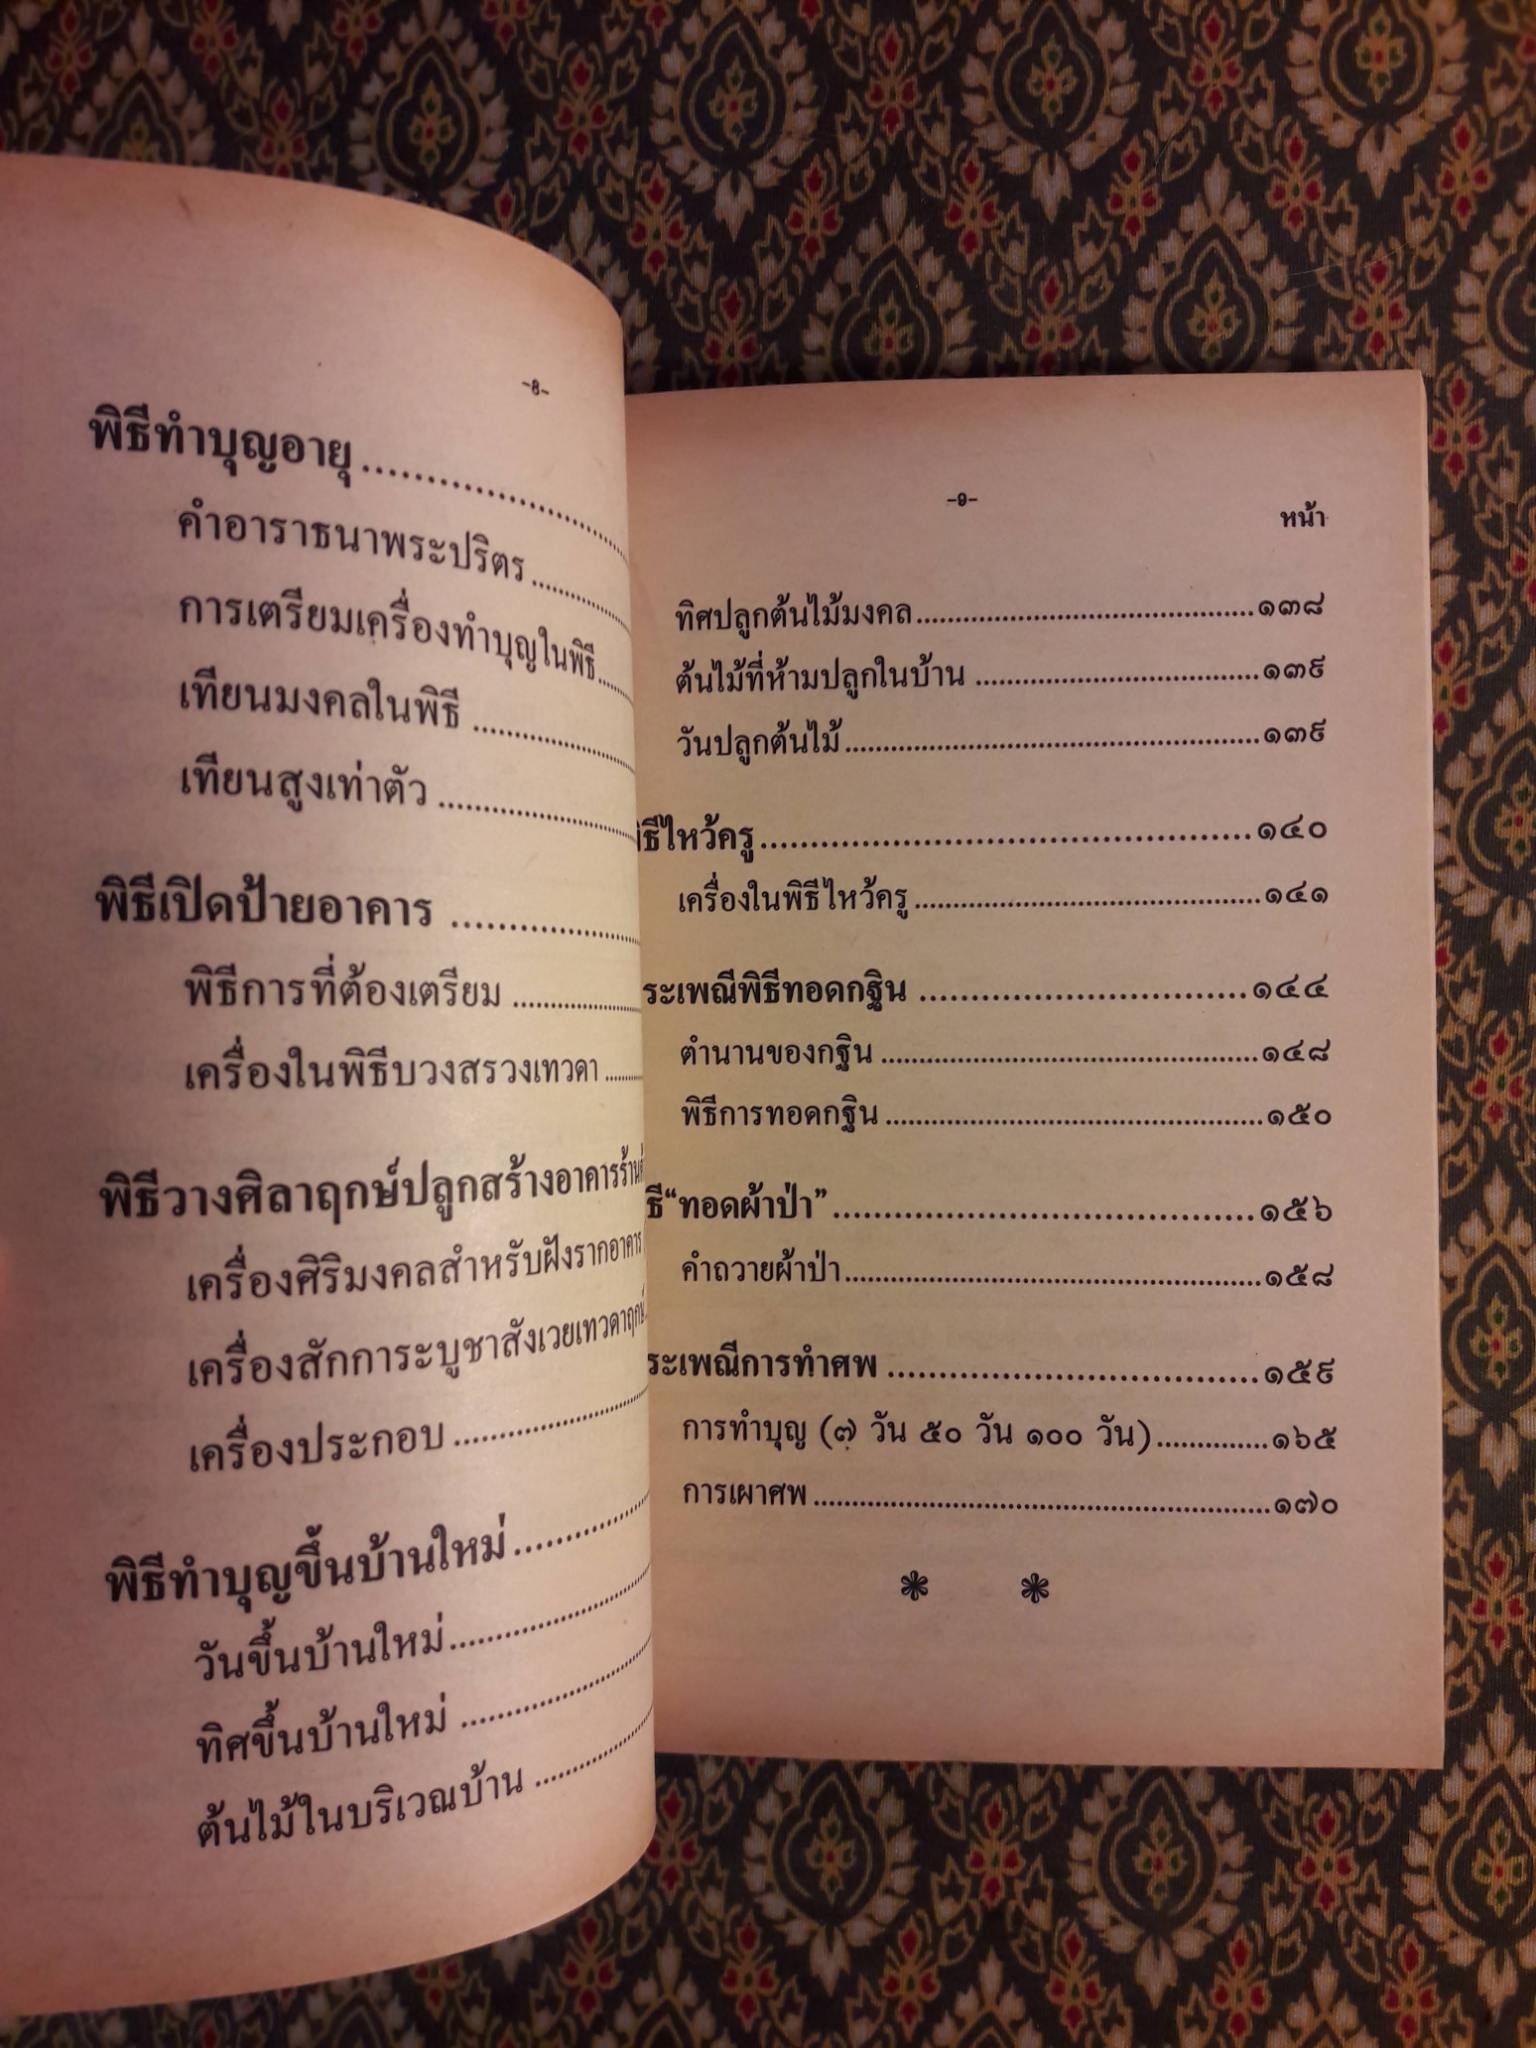 -8-
พิธีทำบุญอายุ
คำอาราธนาพระปริตร
การเตรียมเครื่องทำบุญในพิธี
เทียนมงคลในพิธี
เทียนสูงเท่าตัว
พิธีเปิดป้ายอาคาร
พิธีการที่ต้องเตรียม
เครื่องในพิธีบวงสรวงเทวดา
พิธีวางศิลาฤกษ์ปลูกสร้างอาคาร
เครื่องศิริมงคลสำหรับฝังรากอาคาร
เครื่องสักการะบูชาสังเวยเทวดาฤกษ์
เครื่องประกอบ
พิธีทำบุญขึ้นบ้านใหม่
วันขึ้นบ้านใหม่
ทิศขึ้นบ้านใหม่
ต้นไม้ในบริเวณบ้าน
-9-
หน้า
ทิศปลูกต้นไม้มงคล ๑๓๘
ต้นไม้ที่ห้ามปลูกในบ้าน ๑๓๙
วันปลูกต้นไม้ ๑๓๙
ธีไหว้ครู ๑๔๐
เครื่องในพิธีไหว้ครู ๑๔๑
ระเพณีพิธีทอดกฐิน ๑๔๔
ตำนานของกฐิน ๑๔๘
พิธีการทอดกฐิน ๑๕๐
ธี“ทอดผ้าป่า” ๑๕๖
คำถวายผ้าป่า ๑๕๘
ระเพณีการทำศพ ๑๕๙
การทำบุญ (๗ วัน ๕๐ วัน ๑๐๐ วัน) ๑๖๕
การเผาศพ ๑๗๐